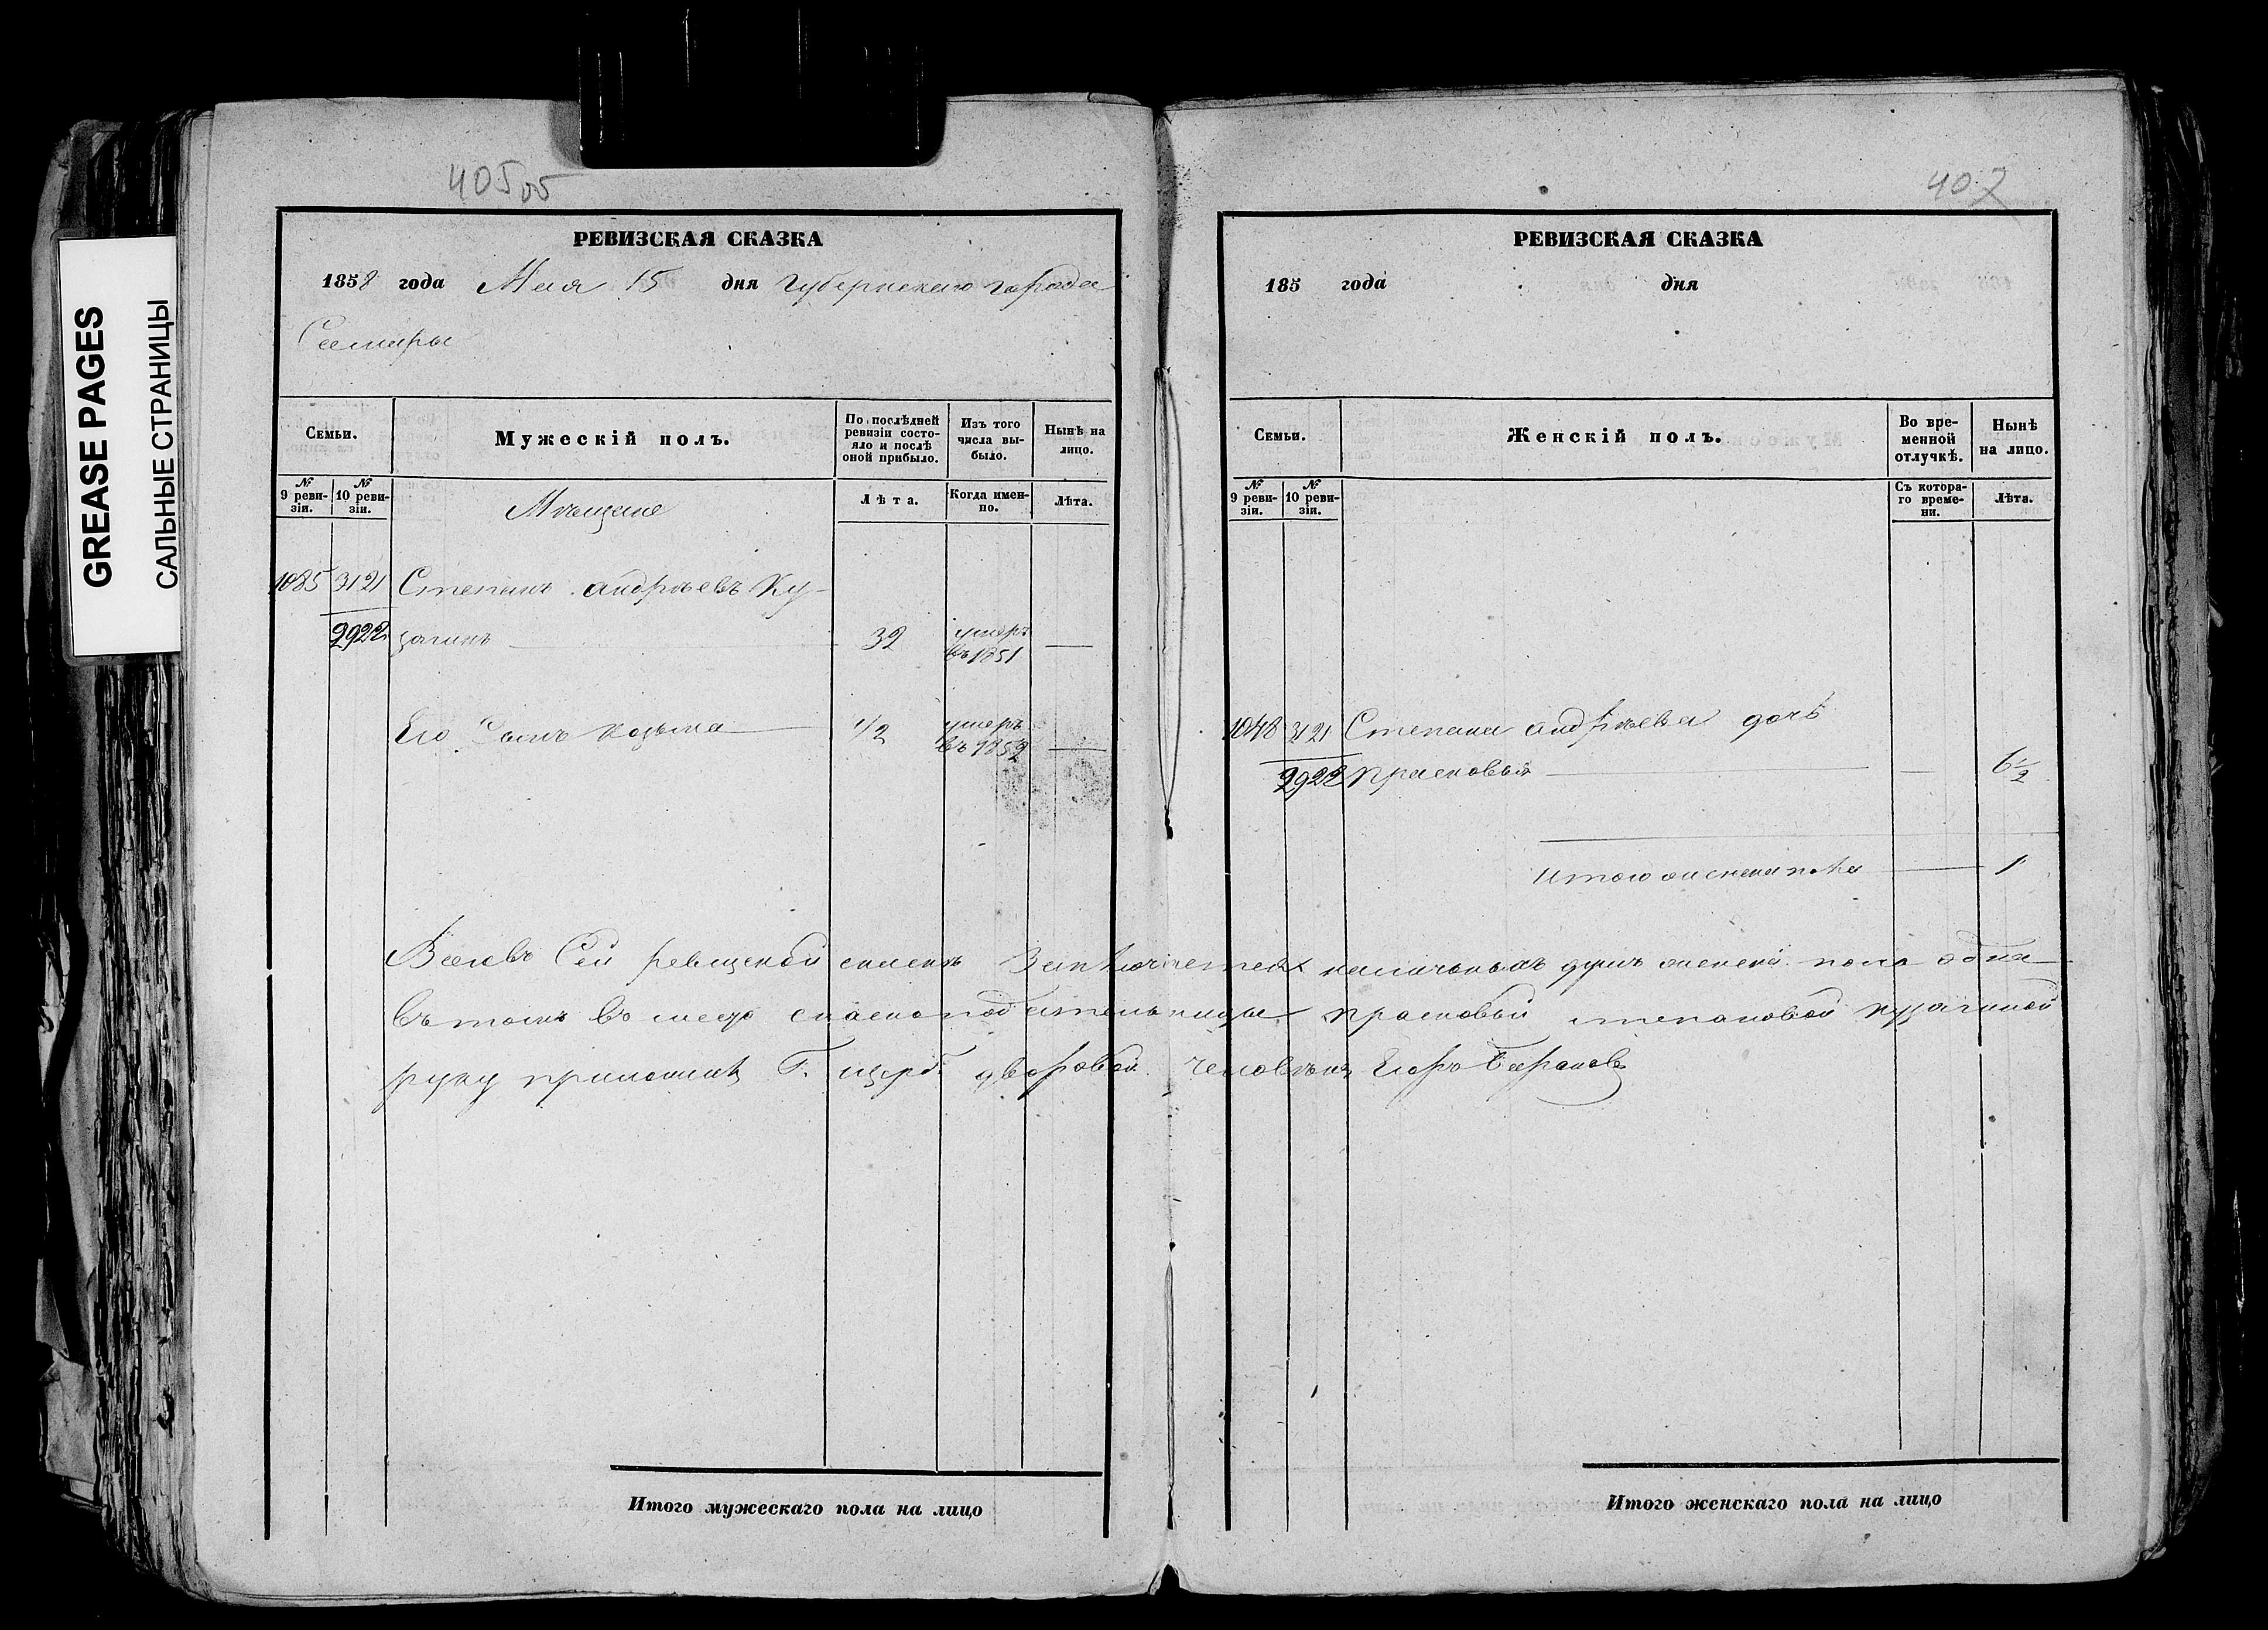 GREASE PAGES
САЛЬНЫЕ СТРАНИЦЫ
405 об
РЕВИЗСКАЯ СКАЗКА
1858 года Мая 15 дня Губернскаго города
Самары
Семьи.
Мужескій полъ.
По послѣдней ревизіи состояло и послѣ оной прибыло.
Изъ того числа выбыло.
Нынѣ на лицо.
№ 9 ревизіи.
№ 10 ревизіи.
Лѣта.
Когда именно.
Лѣта.
Мѣщане
1085 3121 Степанъ андрѣевъ Ку-
2922 загинъ — 32 умеръ въ 1851 —
Его Сынъ Козьма — 1/2 умеръ въ 1852 —
Итого мужескаго пола на лицо
407
РЕВИЗСКАЯ СКАЗКА
185 года дня
Семьи.
Женскій полъ.
Во временной отлучкѣ.
Нынѣ на лицо.
№ 9 ревизіи.
№ 10 ревизіи.
Съ котораго времени.
Лѣта.
1048 3121 Степана андрѣева дочь
2922 Прасковья — — 6 1/2
Итого женска пола — 1
Всего въ Сей ревизской сказкѣ Заключается наличныхъ душъ женска пола одна
въ томъ въ место сказкоподательницы прасковьи степановой кузагиной
руку приложилъ Г. дворовой человѣкъ Егоръ Барановъ
Итого женскаго пола на лицо